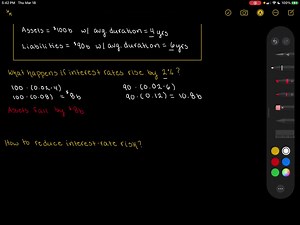 5:42 PM Thu Mar 18
Assets = $100b w/ avg. duration = 4 yrs
Liabilities = $90b w/ avg. duration = 6 yrs
What happens if interest rates rise by 2%?
100 · (0.02 · 4) 90 · (0.02 · 6)
100 · (0.08) = $8b 90 · (0.12) = 10.8b
Assets fall by $8b
How to reduce interest-rate risk?